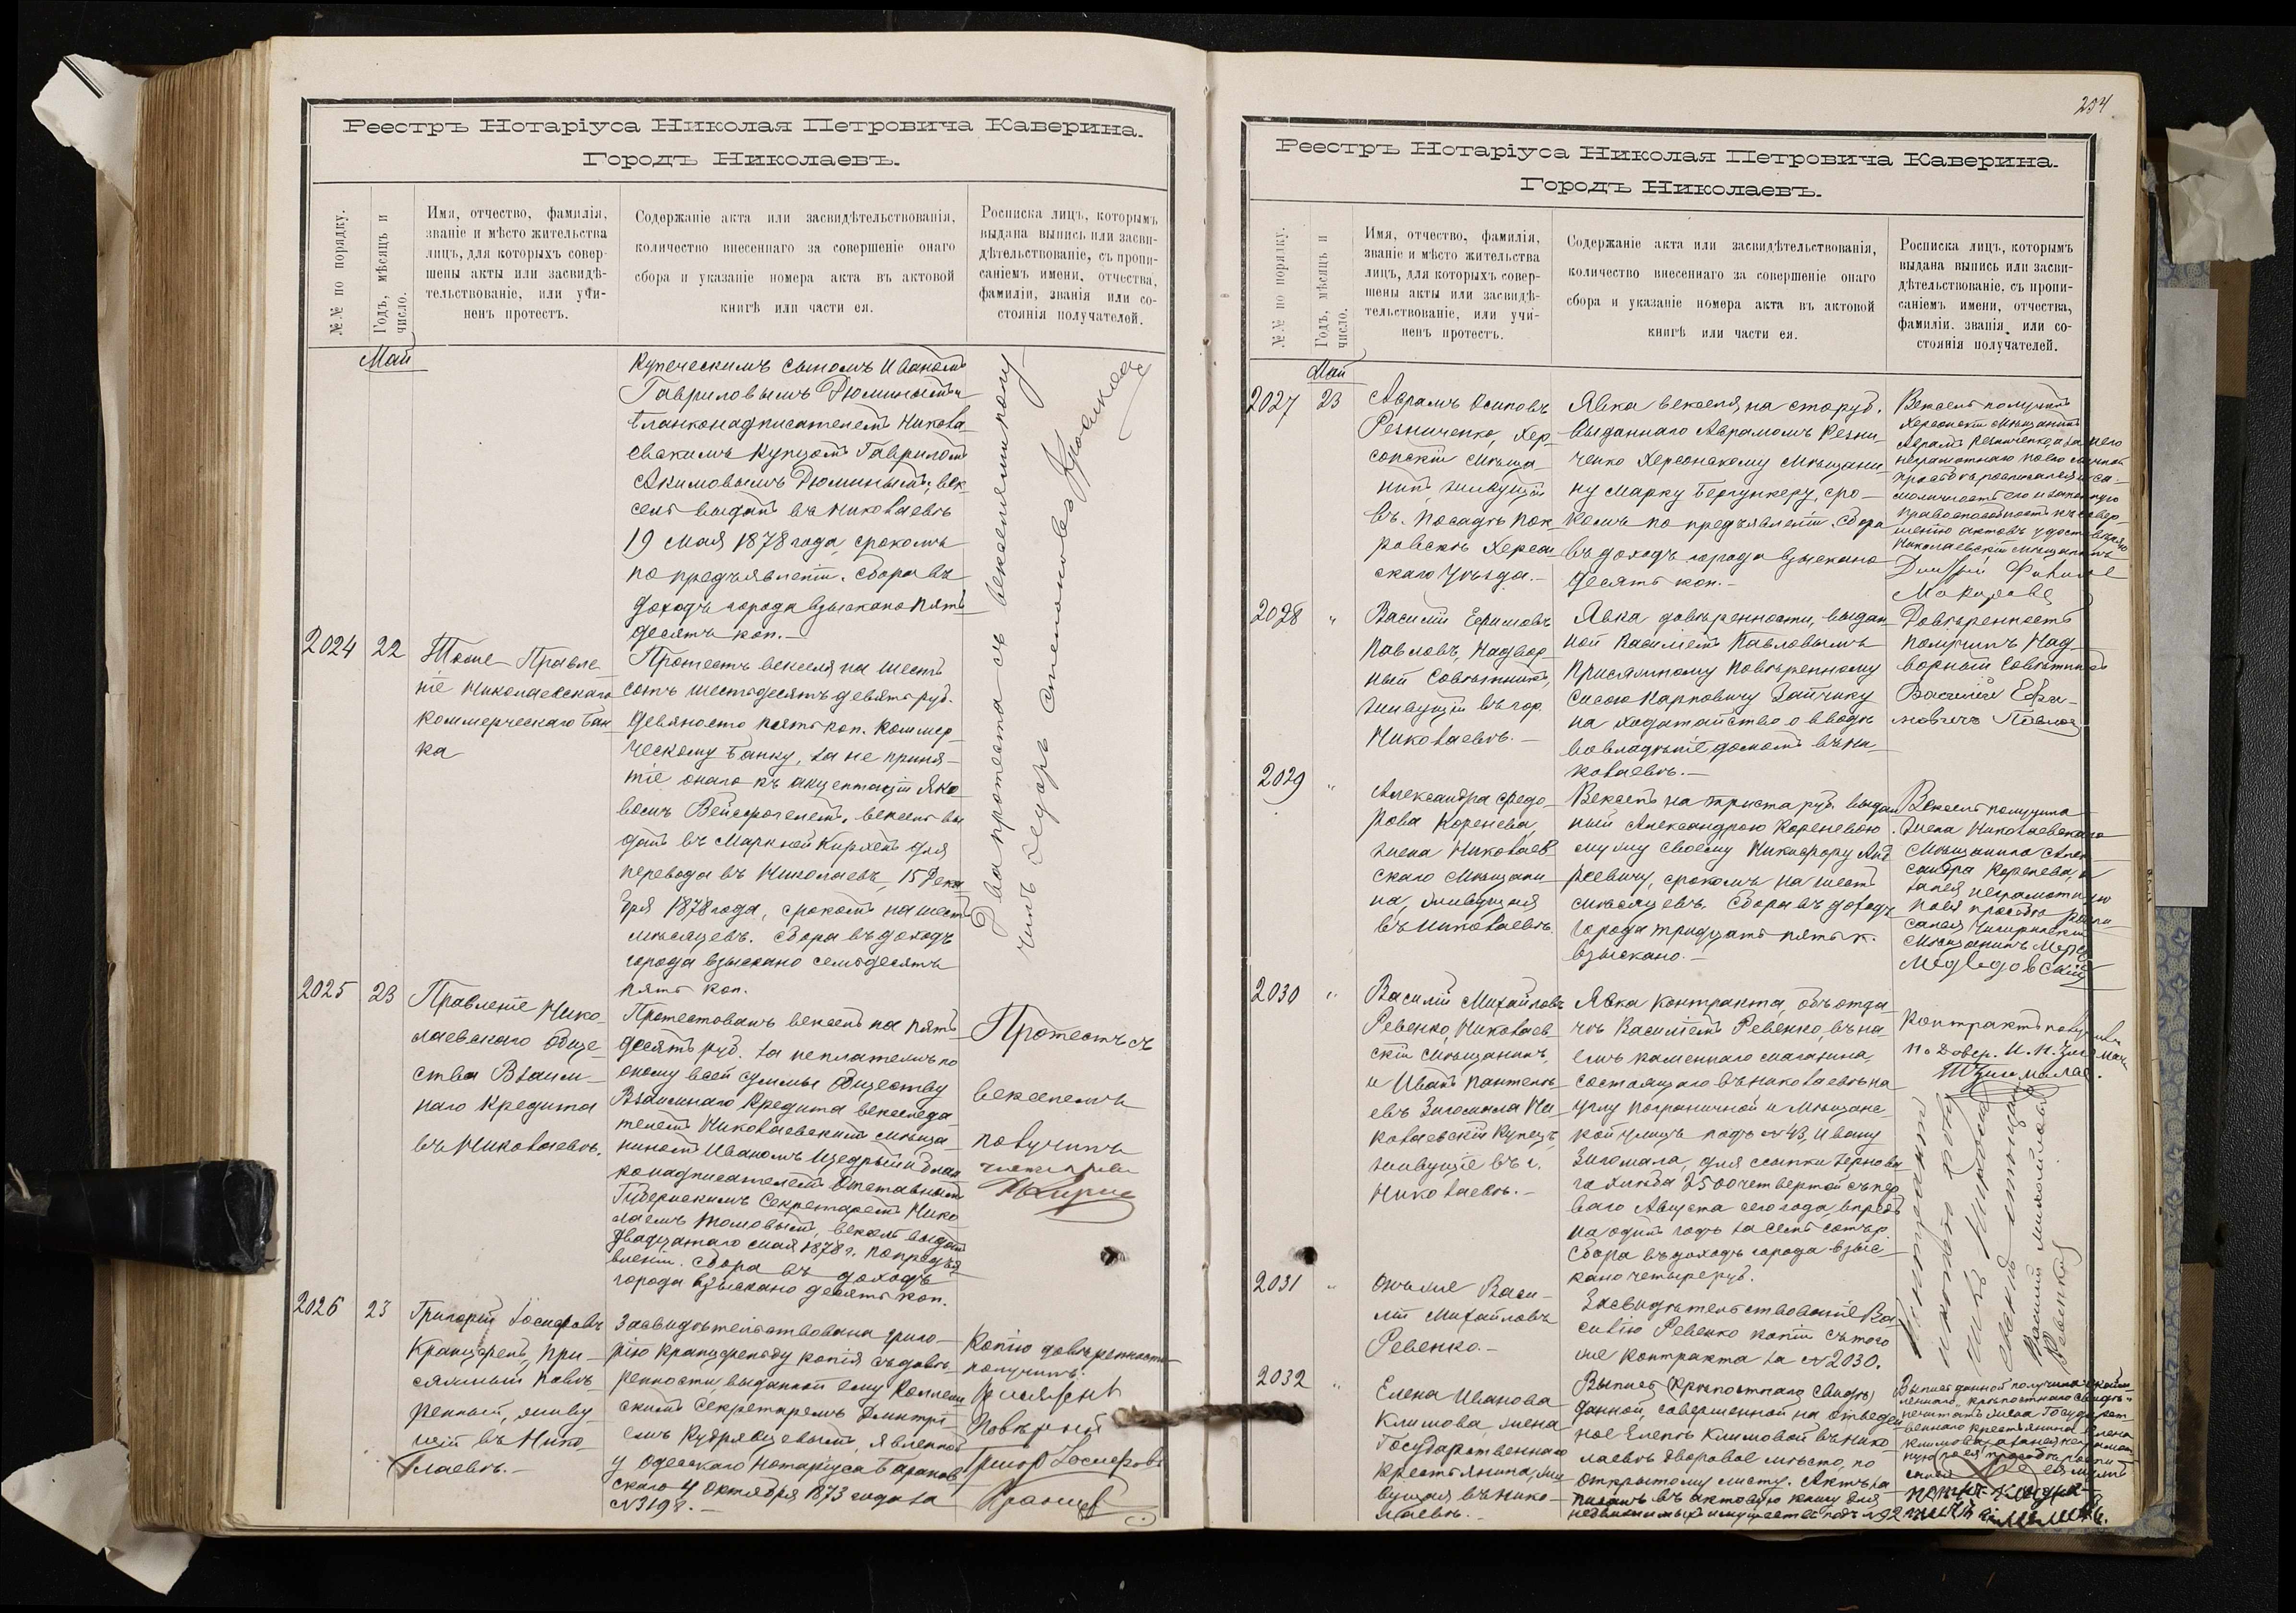 Реестръ Нотаріуса Николая Петровича Каверина.
Городъ Николаевъ.
№№ по порядку.
Годъ, мѣсяцъ и
число.
Имя, отчество, фамилія,
званіе и мѣсто жительства
лицъ, для которыхъ совер-
шены акты или засвидѣ-
тельствованіе, или учи-
ненъ протестъ.
Содержаніе акта или засвидѣтельствованія,
количество внесеннаго за совершеніе онаго
сбора и указаніе номера акта въ актовой
книгѣ или части ея.
Росписка лицъ, которымъ
выдана выпись или засви-
дѣтельствованіе, съ пропи-
саніемъ имени, отчества,
фамиліи, званія или со-
стоянія получателей.
Май
Купеческимъ сыномъ Иваномъ
Гавриловымъ Дюминымъ и
бланконадписателемъ Никола
евскимъ Купцомъ Гавриломъ
Акимовымъ Дюминымъ; век
сель выданъ въ Николаевѣ
19 Мая 1878 года, срокомъ
по предъявленіи. Сбора въ
доходъ города взыскано пять
десятъ коп.—
Два протеста съ векселями полу
чилъ
2024
22
Тоже Правле
ніе Николаевскаго
Коммерческаго Бан
ка
Протестъ векселя на шесть
сотъ шестьдесятъ девять руб.
девяносто пять коп. Коммер
ческому Банку, за не приня
тіе онаго къ акцептаціи Яко
вомъ вексель вы
данъ въ для
перевода въ Николаевъ, 15 Дека
бря 1878 года, срокомъ на шесть
мѣсяцевъ. Сбора въ доходъ
города взыскано семьдесятъ
пять коп.
2025
23
Правленіе Нико
лаевскаго Обще
ства Взаим
наго Кредита
въ Николаевѣ.
Протестованъ вексель на пять
десятъ руб. за неплатежъ по
оному всей суммы Обществу
Взаимнаго Кредита векселеда
телемъ Николаевскимъ мѣща
ниномъ Иваномъ Щедрымъ и блан
конадписателемъ Отставнымъ
Губернскимъ Секретаремъ Нико
лаемъ Томовымъ, вексель выданъ
двадцатаго мая 1878 г. по предъя
вленіи. Сбора въ доходъ
города взыскано десять коп.
Протестъ съ
векселемъ
получилъ
2026
23
Григорій Іосифовъ
Кранцфельдъ, При
сяжный Повѣ
ренный, живу
щій въ Нико
лаевѣ.—
Засвидѣтельствована Григо
рію Кранцфельду копія съ довѣ
ренности, выданной ему Коллеж
скимъ Секретаремъ Дмитрі
емъ Кудрявцевымъ, явленной
у Одесскаго Нотаріуса Баранов
скаго 4 Октября 1873 года за
№ 3198.—
Копію довѣренности
получилъ:
Присяжный
Повѣрный
Григор Іосифовъ
Кранцф
204
Реестръ Нотаріуса Николая Петровича Каверина.
Городъ Николаевъ.
№№ по порядку.
Годъ, мѣсяцъ и
число.
Имя, отчество, фамилія,
званіе и мѣсто жительства
лицъ, для которыхъ совер-
шены акты или засвидѣ-
тельствованіе, или учи-
ненъ протестъ.
Содержаніе акта или засвидѣтельствованія,
количество внесеннаго за совершеніе онаго
сбора и указаніе номера акта въ актовой
книгѣ или части ея.
Росписка лицъ, которымъ
выдана выпись или засви-
дѣтельствованіе, съ пропи-
саніемъ имени, отчества,
фамиліи. званія или со-
стоянія получателей.
Май
2027
23
Аврамъ Осиповъ
Резниченко, Хер
сонскій Мѣща
нинъ, живущій
въ посадѣ Пок
ровскѣ Херсон
скаго Уѣзда.—
Явка векселя на сто руб.
выданнаго Аврамомъ Резни
ченко Херсонскому Мѣщани
ну Марку Бергункеру, сро
комъ по предъявленіи. Сбора
въ доходъ города взыскано
десять коп.—
Вексель получилъ
Херсонскій Мѣщанинъ
Аврамъ Резниченко, а за него
неграмотнаго по его личной
просьбѣ росписался и са
моличность его и законную
правоспособность къ совер
шенію актовъ удостовѣряю
Николаевскій мѣщанинъ
2028
"
Василій Ефимовъ
Павловъ, Надвор
ный Совѣтникъ,
живущій въ гор.
Николаевѣ.—
Явка довѣренности, выдан
ной Василіемъ Павловымъ
Присяжному Повѣренному
Сысою Карповичу Зайчику
на ходатайство о вводѣ
во владѣніе домомъ въ Ни
колаевѣ.—
Довѣренность
получилъ Над
ворный Совѣтникъ
Василій Ефи
мовичъ Павлов
2029
"
Александра Федо
рова Коренева,
жена Николаев
скаго Мѣщани
на, живущая
въ Николаевѣ.
Вексель на триста руб. выдан
ный Александрою Кореневою
мужу своему Никифору Анд
реевичу, срокомъ на шесть
мѣсяцевъ. Сбора въ доходъ
города тридцать пять к.
взыскано.—
Вексель получила
жена Николаевскаго
Мѣщанина Алек
сандра Коренева, а
за нея неграмотную
по ея просьбѣ роспи
сался
Мѣщанинъ
2030
"
Василій Михайловъ
Ревенко, Николаев
скій мѣщанинъ,
и Иванъ Пантелѣ
евъ Зигомала Ни
колаевскій Купецъ,
живущіе въ г.
Николаевѣ.—
Явка контракта, объ отда
чѣ Василіемъ Ревенко, въ на
емъ каменнаго магазина,
состоящаго въ Николаевѣ на
углу Пограничной и Мѣщанс
кой улицъ подъ № 43, Ивану
Зигомала, для ссыпки зернова
го хлѣба 2500 четвертей съ пер
ваго Августа сего года, впредь
на одинъ годъ за семь сотъ р.
Сбора въ доходъ города взыс
кано четыре руб.
Контрактъ получилъ
по довер. И. П. Зигомал
2031
"
Онъ же Васи
лій Михайловъ
Ревенко.—
Засвидѣтельствованіе Ва
силію Ревенко копіи съ того
же контракта за № 2030.
Василий Михайловъ
Ревенко
2032
"
Елена Иванова
Климова, жена
Государственнаго
Крестьянина, жи
вущая въ Нико
лаевѣ.—
Выпись (Крѣпостнаго Свидѣ)
данной, совершенной на отведен
ное Еленѣ Климовой въ Нико
лаевѣ дворовое мѣсто, по
открытому листу. Актъ за
писанъ въ актовую книгу для
недвижимыхъ имуществъ подъ № 92